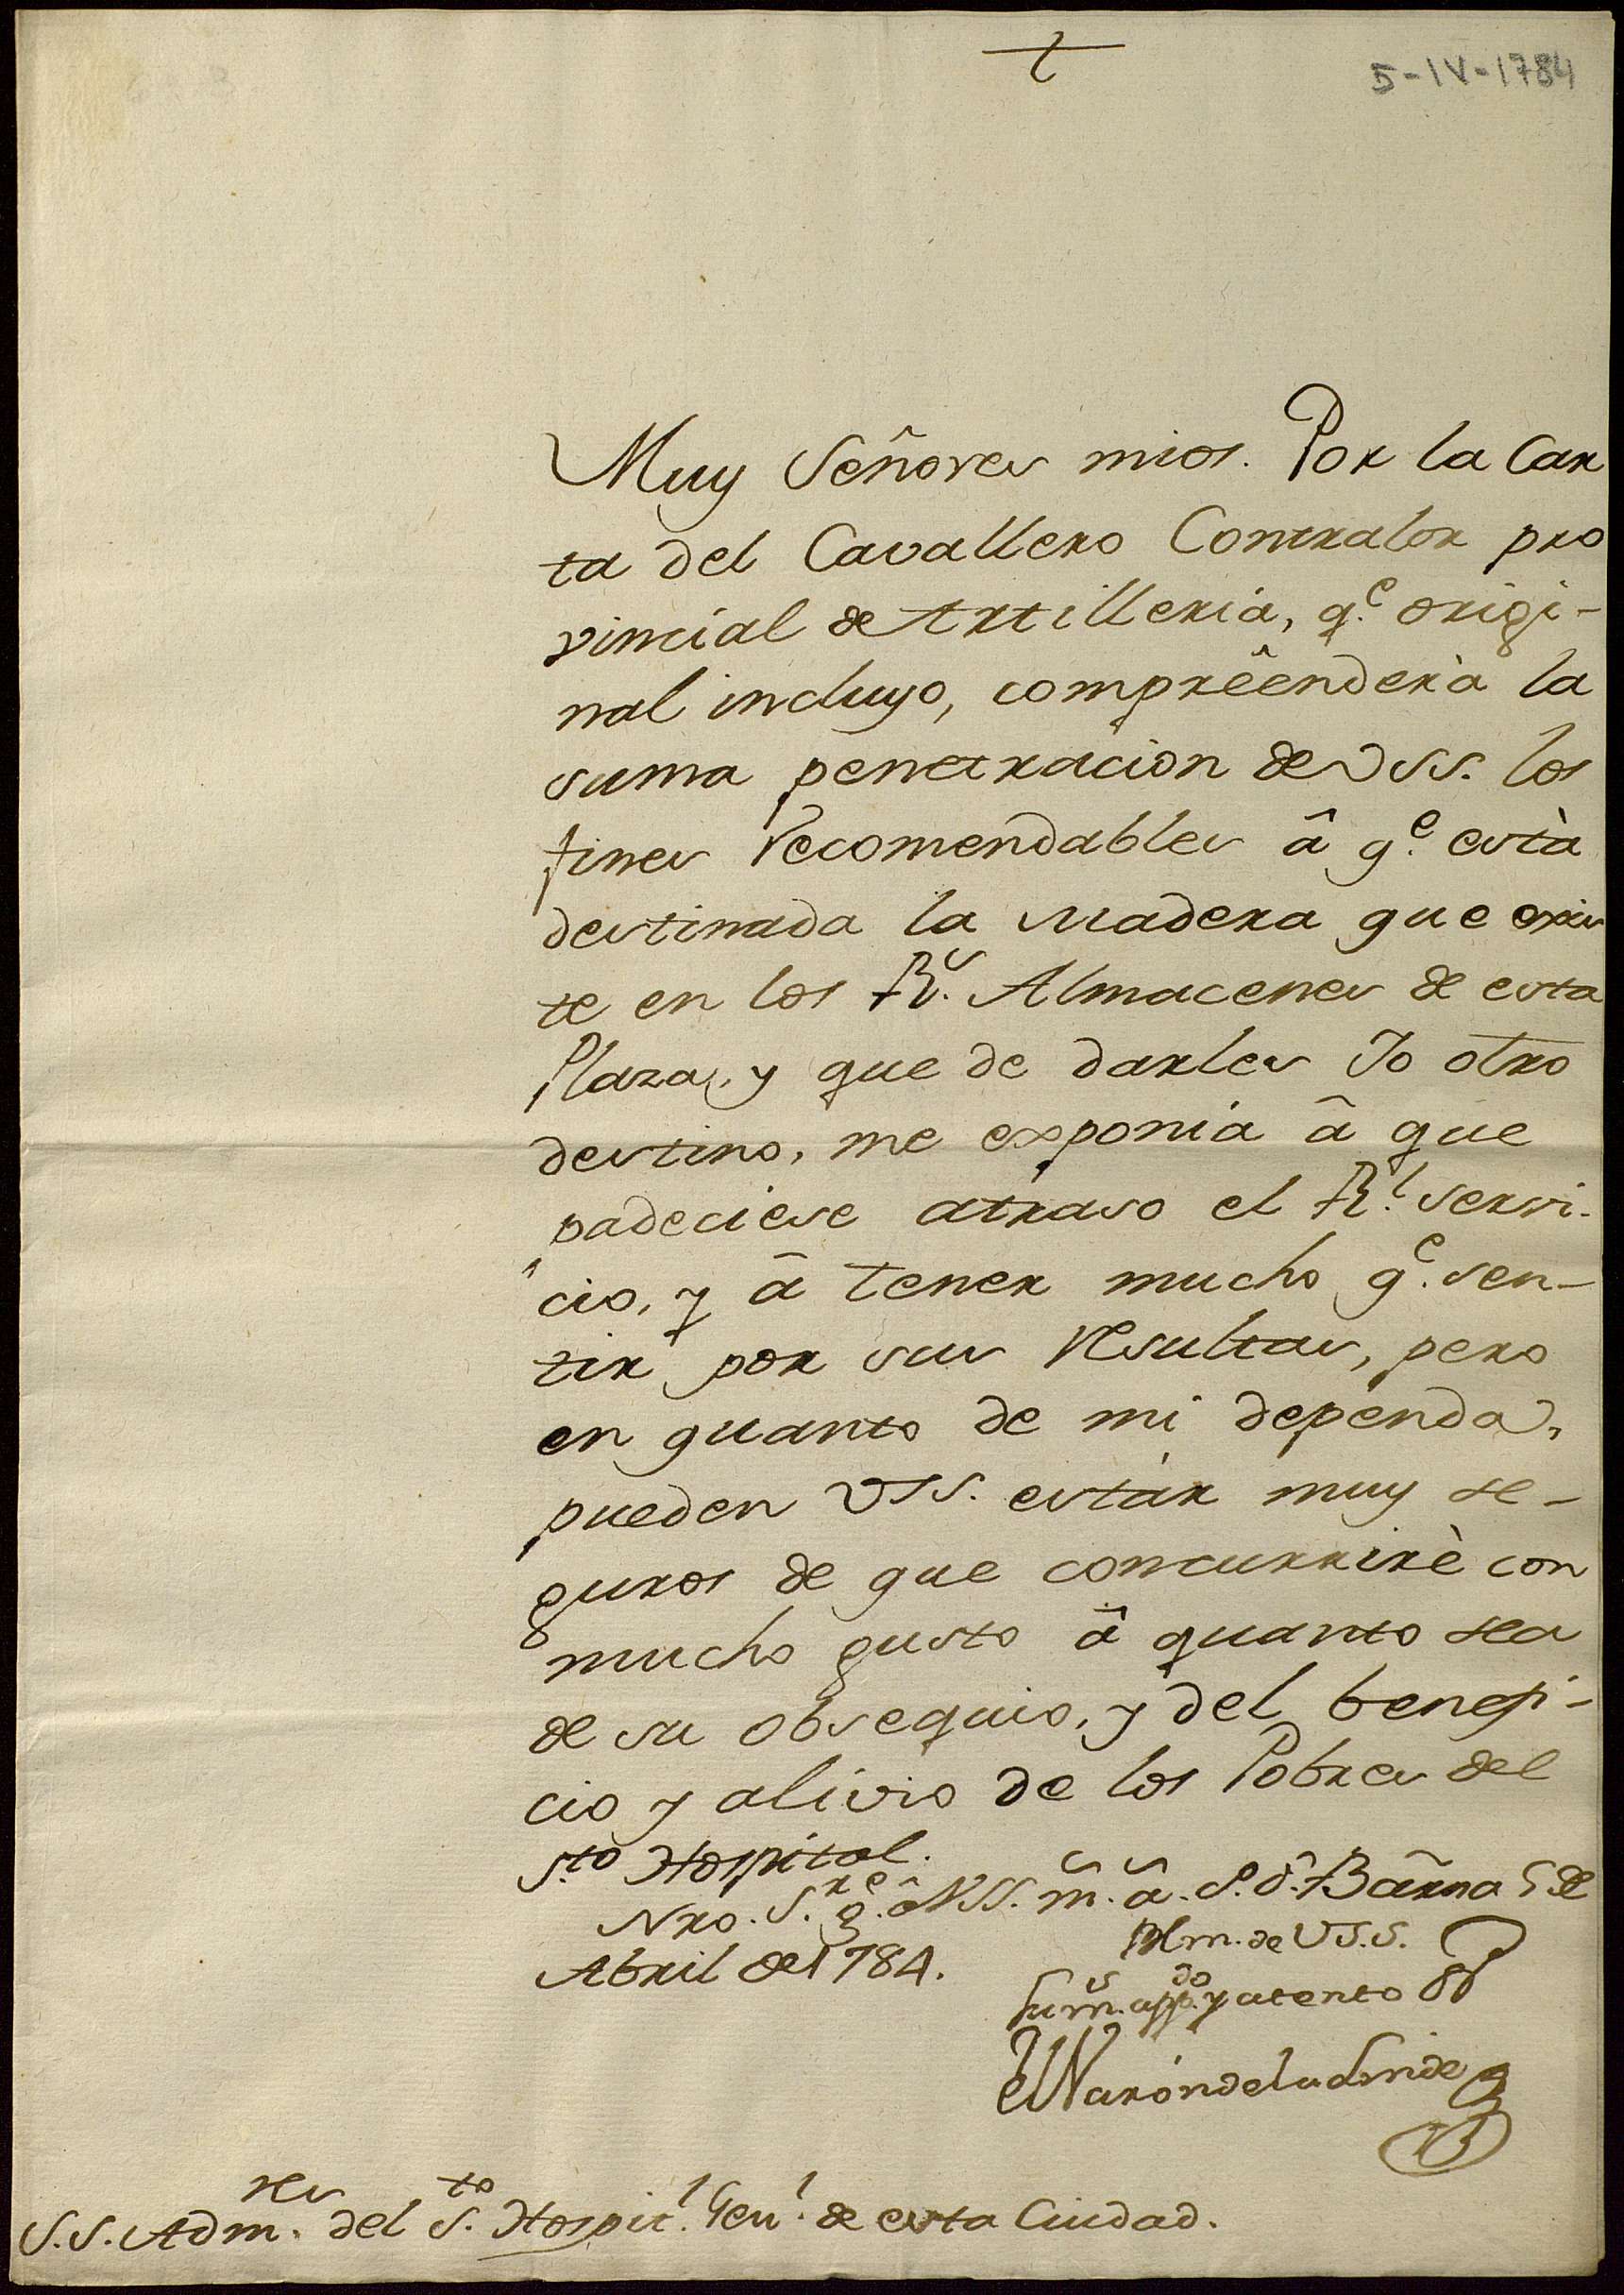 5-IV-1784
Muy Señores mios. Por la Car
ta del Cavallero Contralor pro
vincial de Artilleria, q.e origi-
nal incluyo, comprêenderà la
suma penetracion de VSS. los
fines recomendables â q.e està
destinada la madera que exis
te en los R.s Almacenes de esta
Plaza, y que de darles Yo otro
destino, me exponia â que
padeciese atraso el R.l servi-
cio, y â tener mucho q.e sen-
tir por sus resultas, pero
en quanto de mi dependa,
pueden VSS. estàr muy se-
guros de que concurrirè con
mucho gusto â quanto sea
de su obsequio, y del benefi-
cio y alivio de los Pobres del
S.to Hospital.
Nro. S.r g.e â VSS. m.s a.s Barna 5 de
Abril de 1784.
Blm. de VS.S.
su m.s aff.do y atento
el Varón de la Linde
S.S. Adm.res del S.to Hospit.l Gen.l de esta Ciudad.